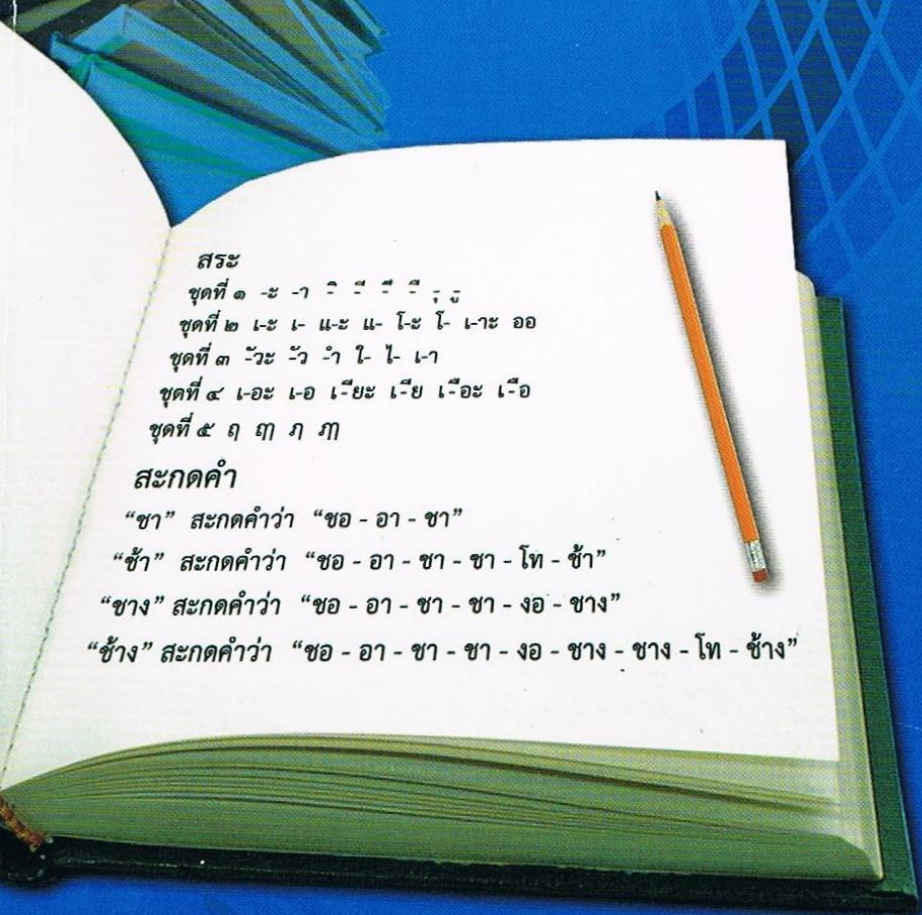 สระ
ชุดที่ ๑ -ะ -า -ิ -ี -ึ -ื -ุ -ู
ชุดที่ ๒ เ-ะ เ- แ-ะ แ- โ-ะ โ- เ-าะ ออ
ชุดที่ ๓ -ัวะ -ัว -ำ ใ- ไ- เ-า
ชุดที่ ๔ เ-อะ เ-อ เ-ียะ เ-ีย เ-ือะ เ-ือ
ชุดที่ ๕ ฤ ฤๅ ฦ ฦๅ
สะกดคำ
“ชา” สะกดคำว่า “ชอ - อา - ชา”
“ช้า” สะกดคำว่า “ชอ - อา - ชา - ชา - โท - ช้า”
“ชาง” สะกดคำว่า “ชอ - อา - ชา - ชา - งอ - ชาง”
“ช้าง” สะกดคำว่า “ชอ - อา - ชา - ชา - งอ - ชาง - ชาง - โท - ช้าง”